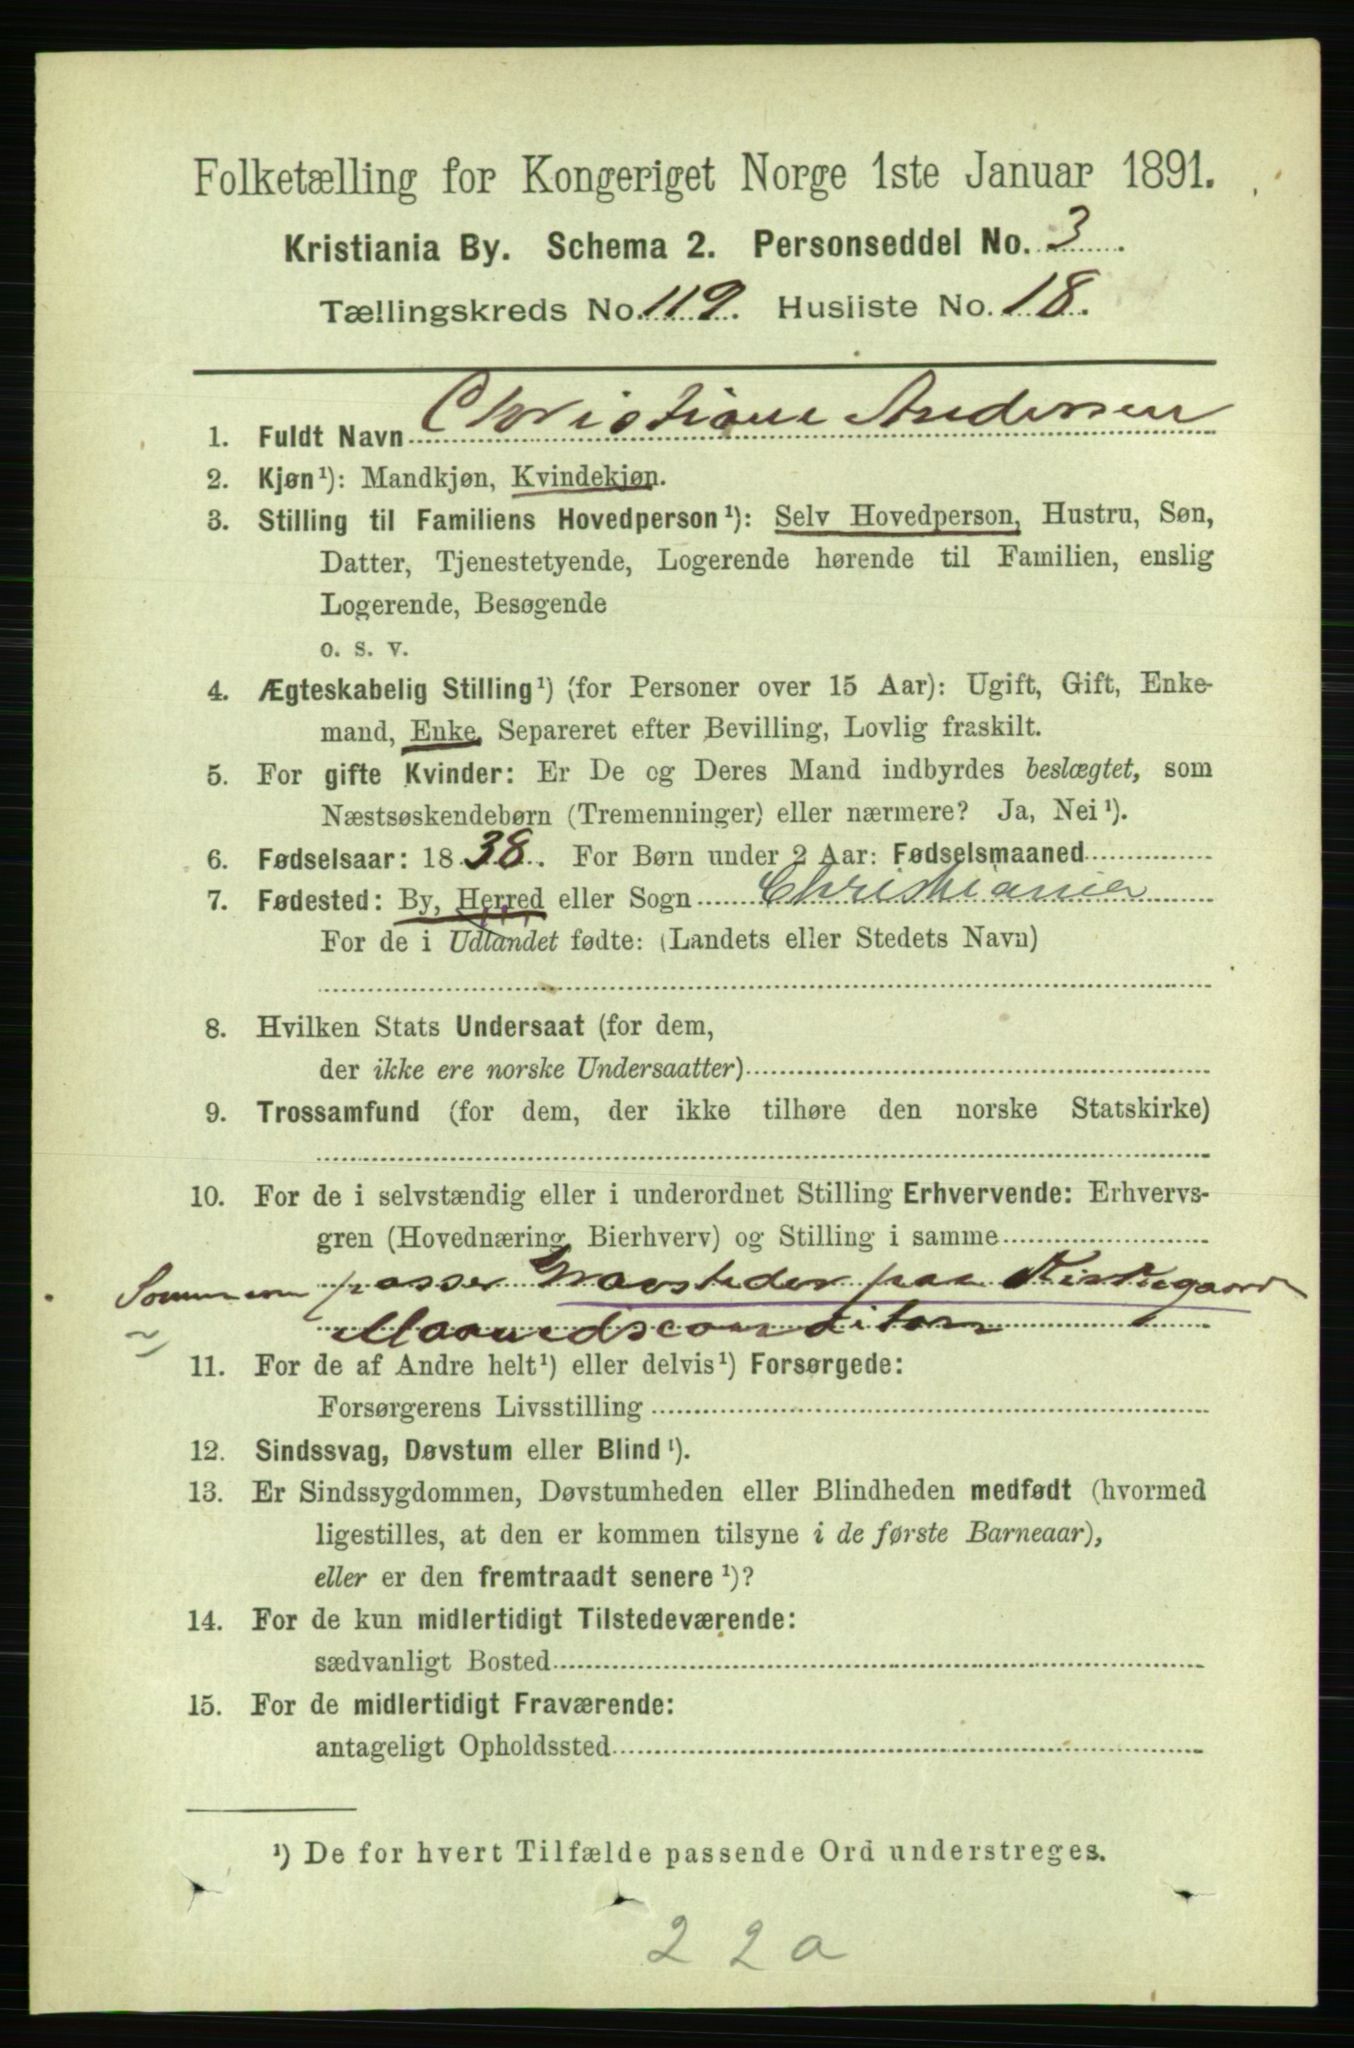 Folketælling for Kongeriget Norge 1ste Januar 1891.
Kristiania By. Schema 2. Personseddel No. 3
Tællingskreds No. 119. Husliste No. 18.
1. Fuldt Navn Christiane Andersen
2. Kjøn¹): Mandkjøn, Kvindekjøn.
3. Stilling til Familiens Hovedperson¹): Selv Hovedperson, Hustru, Søn,
Datter, Tjenestetyende, Logerende hørende til Familien, enslig
Logerende, Besøgende
o. s. v.
4. Ægteskabelig Stilling¹) (for Personer over 15 Aar): Ugift, Gift, Enke-
mand, Enke, Separeret efter Bevilling, Lovlig fraskilt.
5. For gifte Kvinder: Er De og Deres Mand indbyrdes beslægtet, som
Næstsøskendebørn (Tremenninger) eller nærmere? Ja, Nei¹).
6. Fødselsaar: 1838. For Børn under 2 Aar: Fødselsmaaned
7. Fødested: By, Herred eller Sogn Christiania
For de i Udlandet fødte: (Landets eller Stedets Navn)
8. Hvilken Stats Undersaat (for dem,
der ikke ere norske Undersaatter)
9. Trossamfund (for dem, der ikke tilhøre den norske Statskirke)
10. For de i selvstændig eller i underordnet Stilling Erhvervende: Erhvervs-
gren (Hovednæring, Bierhverv) og Stilling i samme
Sommeren passer Gravsteder paa Kirkegaard
11. For de af Andre helt¹) eller delvis¹) Forsørgede:
Forsørgerens Livsstilling
12. Sindssvag, Døvstum eller Blind¹).
13. Er Sindssygdommen, Døvstumheden eller Blindheden medfødt (hvormed
ligestilles, at den er kommen tilsyne i de første Barneaar),
eller er den fremtraadt senere¹)?
14. For de kun midlertidigt Tilstedeværende:
sædvanligt Bosted
15. For de midlertidigt Fraværende:
antageligt Opholdssted
¹) De for hvert Tilfælde passende Ord understreges.
22a